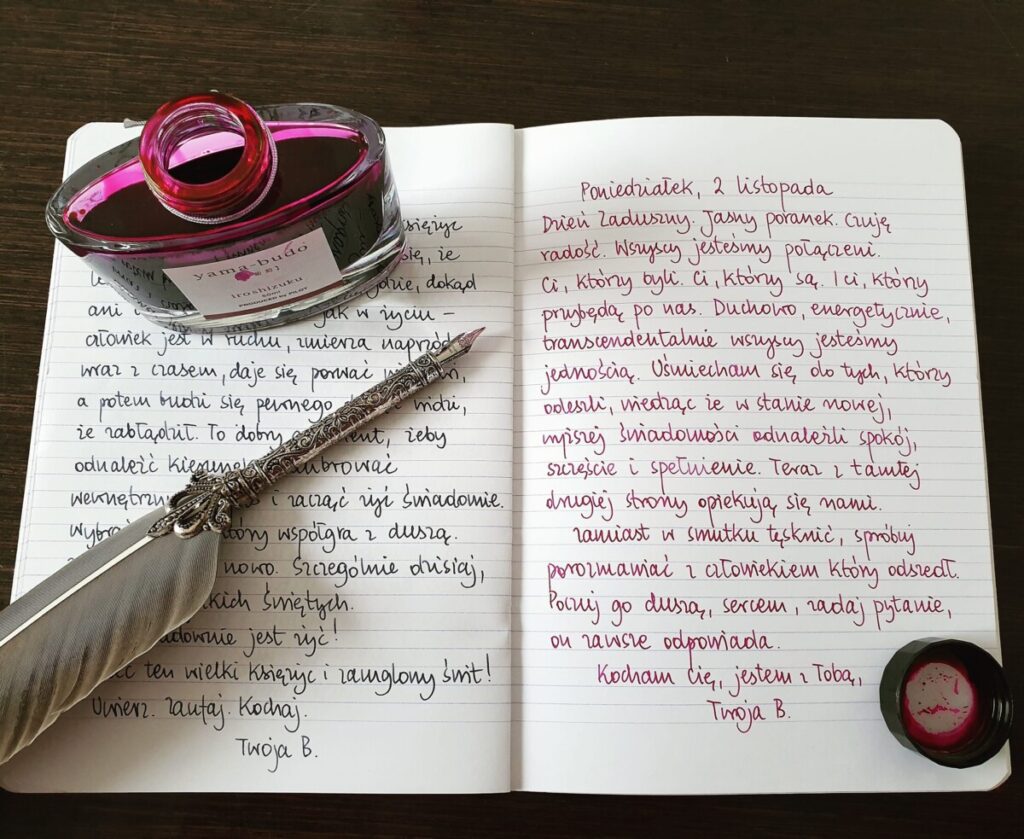 yama-budo
iroshizuku
PRODUCED BY PILOT
się, że
dokąd
ani jak w życiu –
człowiek jest w ruchu, zmierza naprzód
wraz z czasem, daje się porwać
a potem budzi się pewnego widzi,
że zabłądził. To dobry żeby
odnaleźć
i zacząć żyć świadomie.
współgra z duszą.
nowo. Szczególnie dzisiaj,
świętych.
jest żyć!
ten wielki Księżyc i zamglony świt!
Uwierz. Zaufaj. Kochaj.
Twoja B.
Poniedziałek, 2 listopada
Dzień Zaduszny. Jasny poranek. Czuję
radość. Wszyscy jesteśmy połączeni.
Ci, którzy byli. Ci, którzy są. I ci, którzy
przybędą po nas. Duchowo, energetycznie,
transcendentalnie wszyscy jesteśmy
jednością. Uśmiecham się do tych, którzy
odeszli, wiedząc że w stanie nowej,
wyższej świadomości odnaleźli spokój,
szczęście i spełnienie. Teraz z tamtej
drugiej strony opiekują się nami.
Zamiast w smutku tęsknić, spróbuj
porozmawiać z człowiekiem który odszedł.
Poczuj go duszą, sercem, zadaj pytanie,
on zawsze odpowiada.
Kocham Cię, jestem z Tobą,
Twoja B.